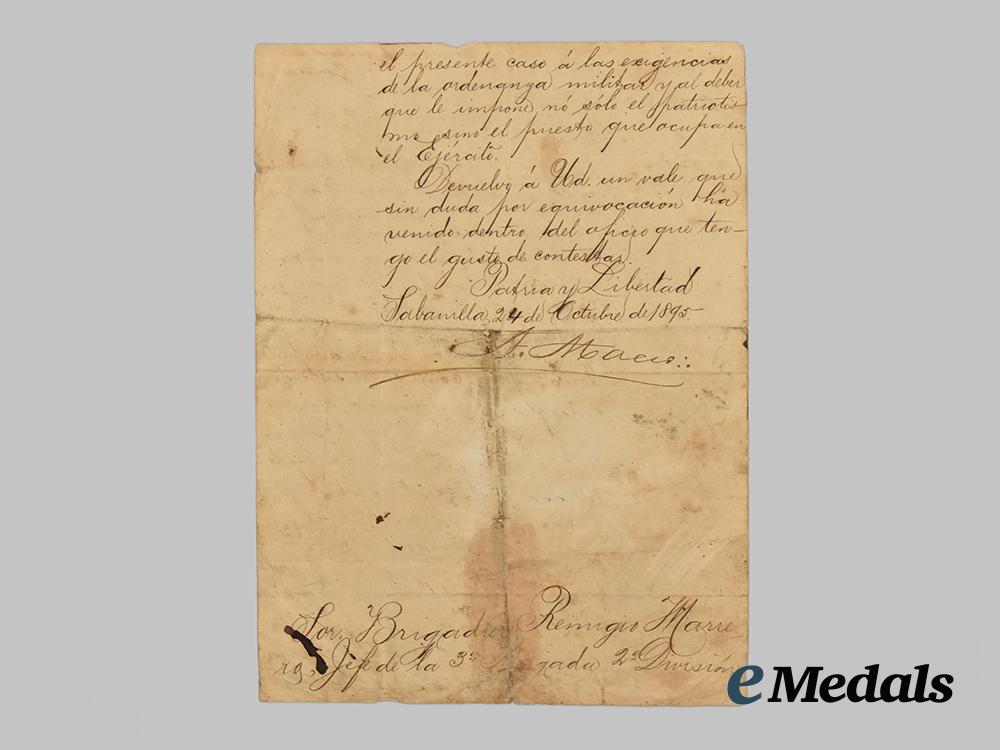 el presente caso á las exigencias
de la ordenanza militar y al deber
que le impone nó sólo el patriotis
mo sino el puesto que ocupa en
el Ejército.
Devuelvo á Ud. un vale que
sin duda por equivocación ha
venido dentro del oficio que ten-
go el gusto de contestar.
Patria y Libertad
Sabanilla, 24 de Octubre de 1895.
A. Maceo
Sor. Brigadier Remigio Marre
ro, Jefe de la 3ª Brigada 2ª División
eMedals